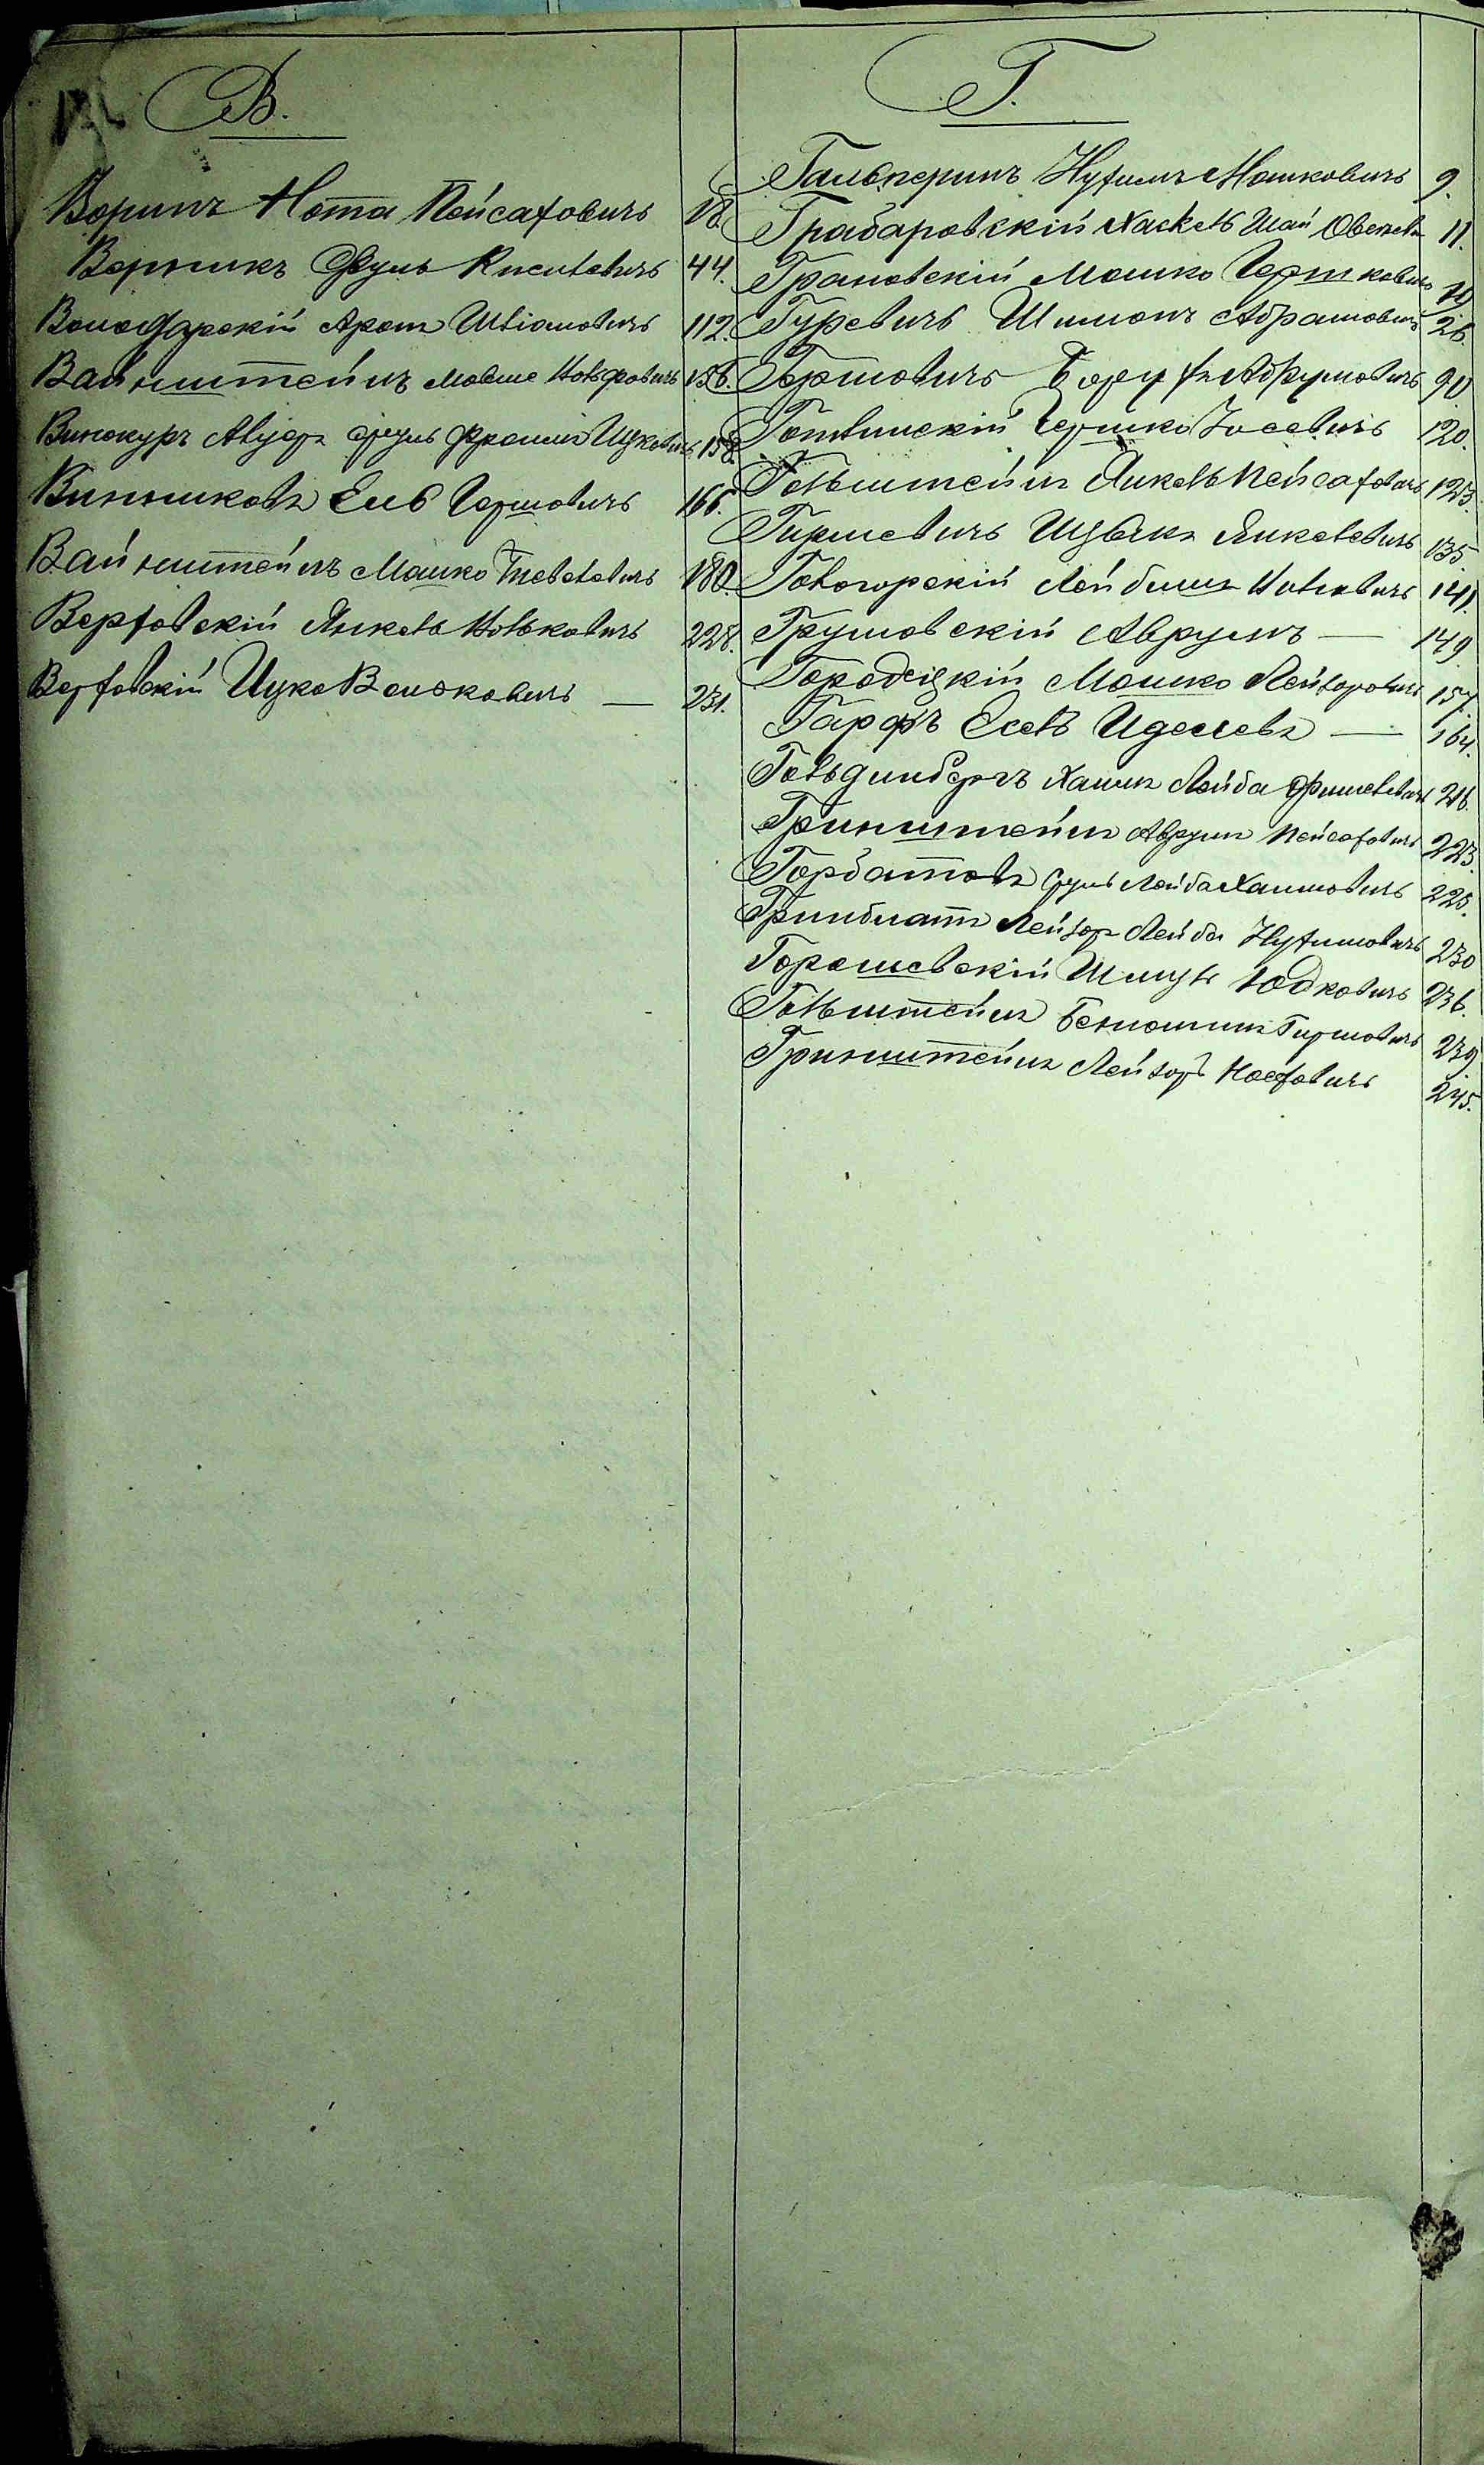 В.
Воринъ Нота Пейсаховичъ 18.
Верникъ Сруль Кисилевичъ 44.
Володарскій Аронъ Шліомовичъ 112.
Вайнштейнъ Мовше 156.
Винокуръ Авузеръ Сруль Фроимъ Ицковичъ 158.
Винниковъ Ель Гершовичъ 166.
Вайнштейнъ Мошко Тевелевичъ 180.
Верховскій Янкель Вольковичъ 228.
Верховскій Ицко Вольковичъ — 231.
Г.
Гальперинъ Нухимъ Мошковичъ 9.
Грабаровскій Хаскель Шая 11.
Грановскій Мошко Гершковичъ
Гуревичъ Шимонъ Абрамовичъ 26.
Гершовичъ Борухъ Абрумовичъ 90
Гершко Іосевичъ 120.
Гольштейнъ Янкель Пейсаховичъ 123.
Гиршевичъ Янкелевичъ 135.
Говогорскій Лейбишъ 141.
Грушовскій Аврумъ — 149
Городецкій Мошко Лейзоровичъ 157.
Гарфъ Есель Иделевъ — 164.
Гольдинбергъ Хаимъ Лейба Фишелевичъ 216.
Гринштейнъ Аврумъ Пейсаховичъ 223.
Горбатовъ Сруль Лейба Хаимовичъ 225.
Гринблатъ Лейзоръ Лейба Нухимовичъ 230
Горошевскій Шмуль Юдковичъ 236.
Гольштейнъ Беньоминъ Гиршовичъ 239
Гринштейнъ Лейзоръ Іосфовичъ 245.